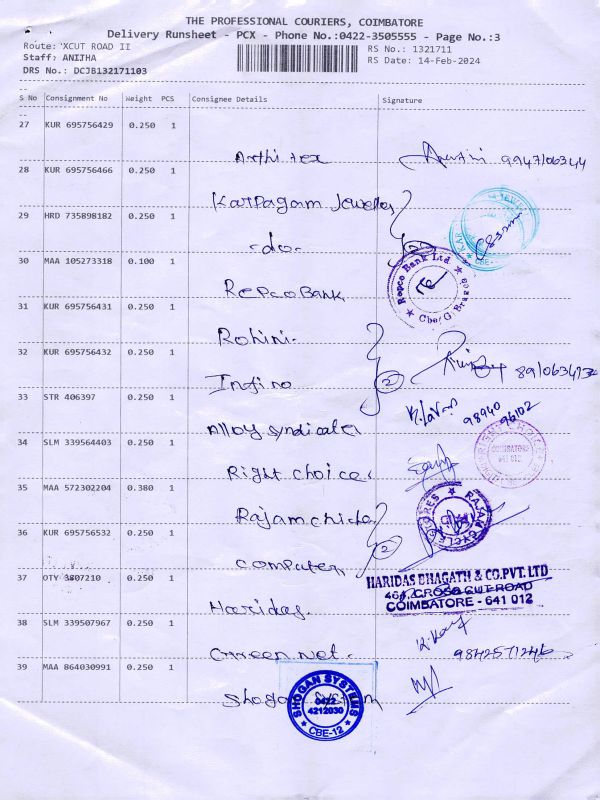 THE PROFESSIONAL COURIERS, COIMBATORE
Delivery Runsheet - PCX - Phone No.:0422-3505555 - Page No.:3
Route: 'XCUT ROAD II
Staff: ANITHA
DRS No.: DCJB132171103
RS No.: 1321711
RS Date: 14-Feb-2024
S No Consignment No Weight PCS Consignee Details Signature
27 KUR 695756429 0.250 1
Arthi tex 9947106344
28 KUR 695756466 0.250 1
Karpagam Jewellers
29 HRD 735898182 0.250 1
-do-
30 MAA 105273318 0.100 1
Repco Bank
Repco Bank Ltd
31 KUR 695756431 0.250 1
Rohini
32 KUR 695756432 0.250 1
2
33 STR 406397 0.250 1
Alloy Syndicate
98940 96102
34 SLM 339564403 0.250 1
Right choice
COIMBATORE
641 012
35 MAA 572302204 0.380 1
RAJAM CYCLE STORES
36 KUR 695756532 0.250 1
computer
2
HARIDAS BHAGATH & CO.PVT. LTD
CROSS CUT ROAD
COIMBATORE - 641 012
37 OTY 3807210 0.250 1
Haridas
38 SLM 339507967 0.250 1
Green net
9842571246
39 MAA 864030991 0.250 1
SHOGAN SYSTEMS
0422
4212030
CBE-12